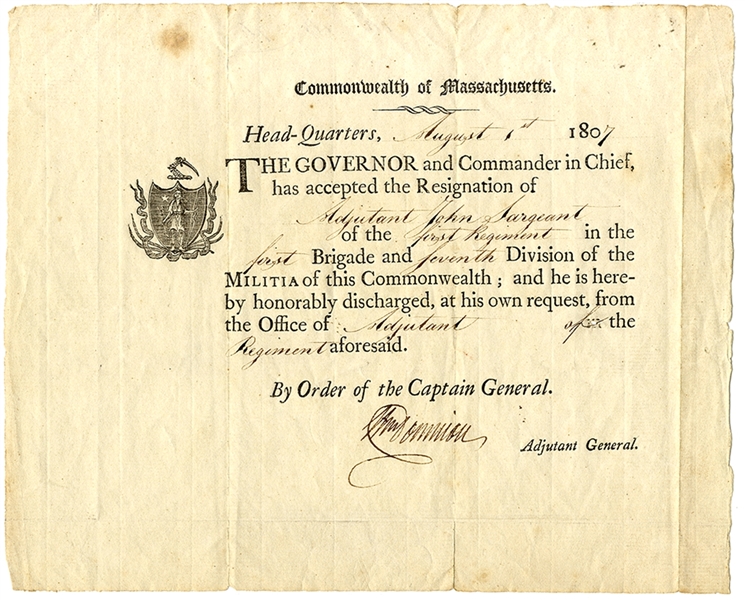 Commonwealth of Massachusetts.
Head-Quarters, August 1st 1807
THE GOVERNOR and Commander in Chief,
has accepted the Resignation of
Adjutant John Sargeant
of the first Regiment in the
first Brigade and seventh Division of the
MILITIA of this Commonwealth ; and he is here-
by honorably discharged, at his own request, from
the Office of Adjutant of the
Regiment aforesaid.
By Order of the Captain General.
Wm Donnison
Adjutant General.